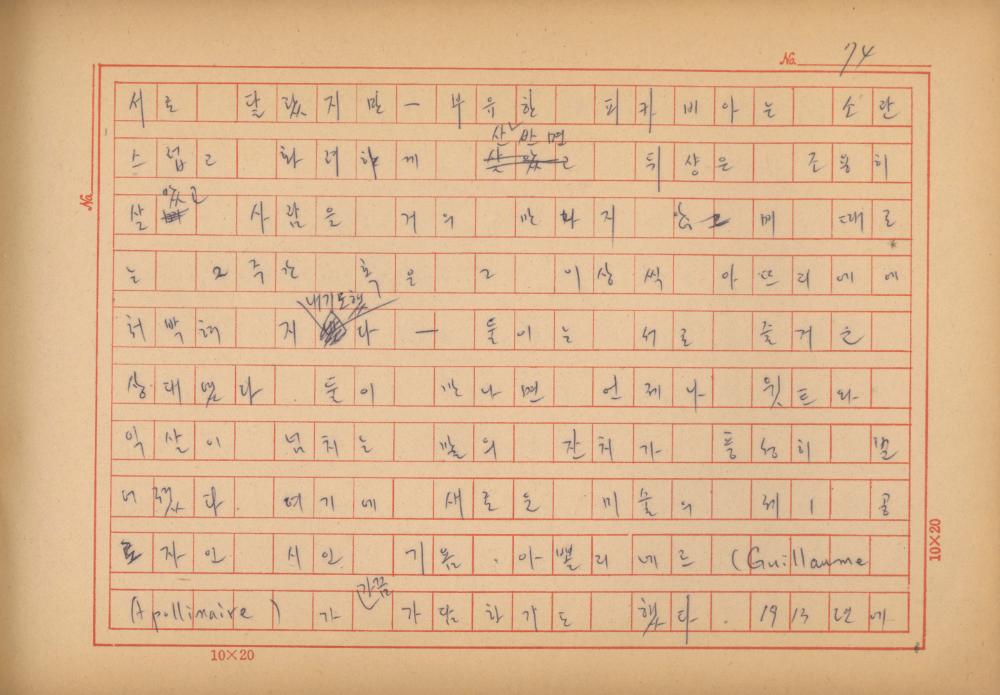 No. 74
서로 달랐지만 — 부유한 피카비아는 소란
스럽고 화려하게 산 반면 뒤샹은 조용히
살았고 사람을 거의 만나지 않으며 때로
는 2주 혹은 그 이상씩 아뜨리에에
처박혀 지내기도 했다 — 둘이는 서로 즐거운
상대였다. 둘이 만나면 언제나 윗트와
익살이 넘치는 말의 잔치가 풍성히 벌
어졌다. 여기에 새로운 미술의 제1 공
로자인 시인 기욤·아뽈리네르 (Guillaume
Apollinaire) 가 가끔 가담하기도 했다. 1913년에
No.
10×20
10×20